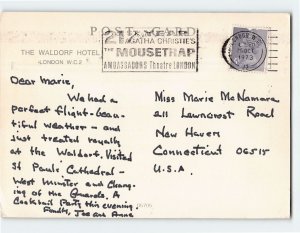 POST CARD
21st YEAR
AGATHA CHRISTIE'S
THE MOUSETRAP
AMBASSADORS Theatre LONDON
THE WALDORF HOTEL
LONDON. W.C.2
1973
Dear Marie,
We had a
perfect flight-beau-
tiful weather - and
just treated royally
at the Waldorf. Visited
St Pauls Cathedral -
West Minster and Chang-
ing of the Guards. A
Cocktail Party this evening.
Fondly, Joe and Anne
Miss Marie McNamara
211 Lawncrest Road
New Haven
Connecticut 06515
U.S.A.